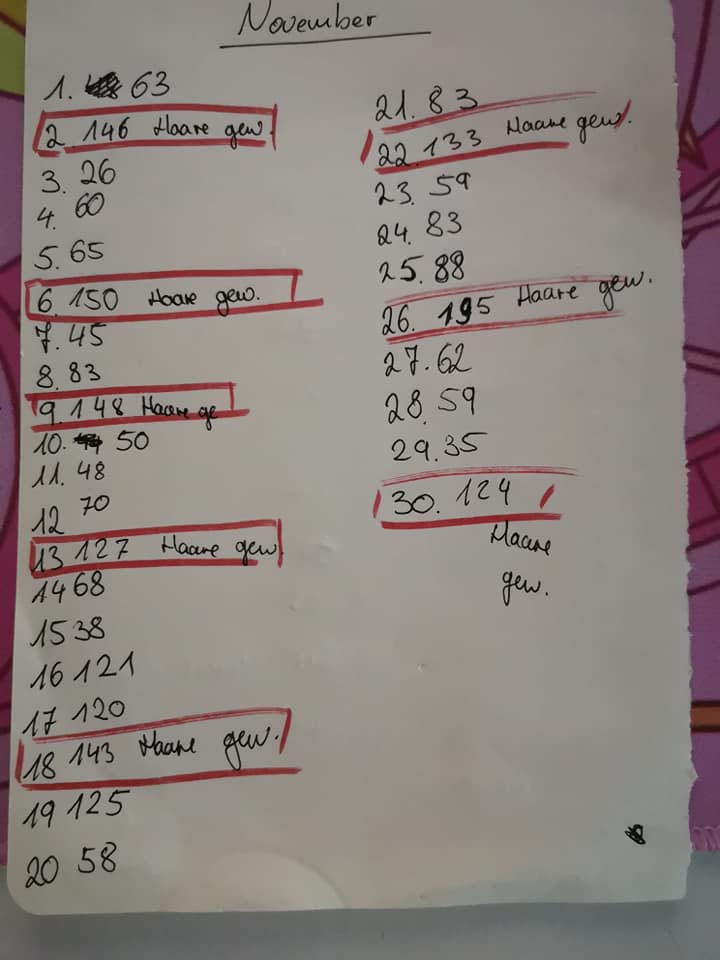 November
1. 63
2. 146 Haare gew.
3. 26
4. 60
5. 65
6. 150 Haare gew.
7. 45
8. 83
9. 148 Haare ge
10. 50
11. 48
12 70
13 127 Haare gew.
14 68
15 38
16 121
17 120
18 143 Haare gew.
19 125
20 58
21. 83
22. 133 Haare gew.
23. 59
24. 83
25. 88
26. 195 Haare gew.
27. 62
28. 59
29. 35
30. 124
Haare
gew.